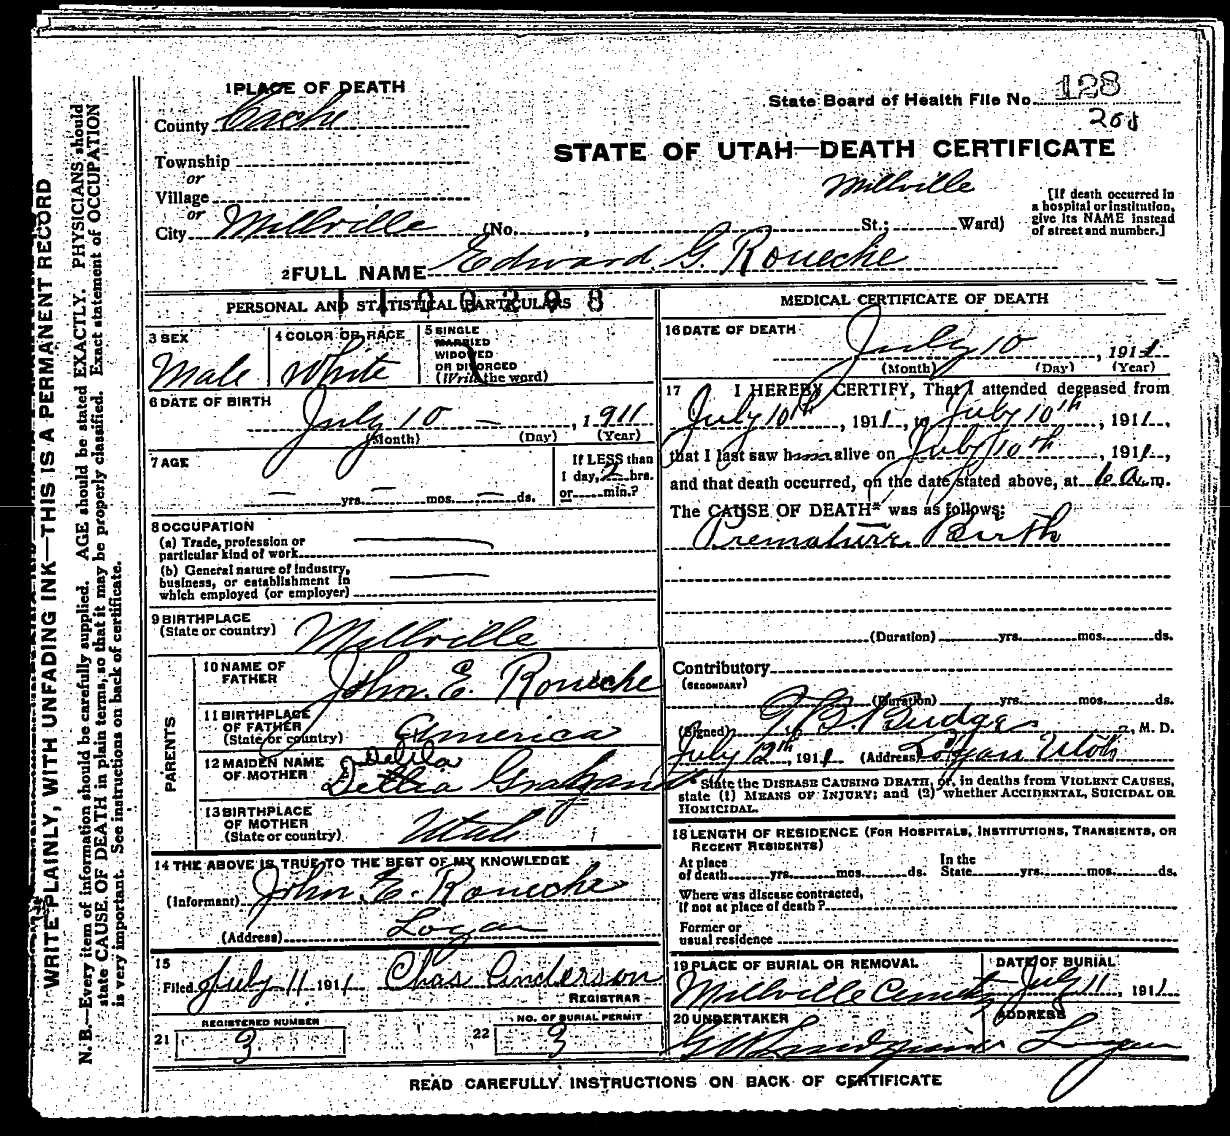 1 PLACE OF DEATH
State Board of Health File No. 128
County Cache
STATE OF UTAH—DEATH CERTIFICATE
Township
or
Village
or
City Millville (No. , St.; Ward)
Millville
[If death occurred in
a hospital or institution,
give its NAME instead
of street and number.]
2 FULL NAME Edward G. Roueche
PERSONAL AND STATISTICAL PARTICULARS
3 SEX
Male
4 COLOR OR RACE
White
5 SINGLE
MARRIED
WIDOWED
OR DIVORCED
(Write the word)
6 DATE OF BIRTH
July 10 , 1911
(Month) (Day) (Year)
7 AGE
yrs. mos. ds.
If LESS than
1 day, 2 hrs.
or min.?
8 OCCUPATION
(a) Trade, profession or
particular kind of work
(b) General nature of industry,
business, or establishment in
which employed (or employer)
9 BIRTHPLACE
(State or country) Millville
PARENTS
10 NAME OF
FATHER John E. Roueche
11 BIRTHPLACE
OF FATHER
(State or country) America
12 MAIDEN NAME
OF MOTHER
Delila
13 BIRTHPLACE
OF MOTHER
(State or country) Utah
14 THE ABOVE IS TRUE TO THE BEST OF MY KNOWLEDGE
(Informant) John E. Roueche
(Address) Logan
15
Filed July 11 1911 Chas Anderson
REGISTRAR
REGISTERED NUMBER
21 3
NO. OF BURIAL PERMIT
22 3
MEDICAL CERTIFICATE OF DEATH
16 DATE OF DEATH
July 10 , 1911
(Month) (Day) (Year)
17 I HEREBY CERTIFY, That I attended deceased from
July 10th , 1911, to July 10th , 1911,
that I last saw him alive on July 10th , 1911,
and that death occurred, on the date stated above, at 6 a.m.
The CAUSE OF DEATH* was as follows:
Premature Birth
(Duration) yrs. mos. ds.
Contributory
(SECONDARY)
(Duration) yrs. mos. ds.
(Signed) Budge , M. D.
July 12th, 1911 (Address) Logan Utah
* State the DISEASE CAUSING DEATH, or, in deaths from VIOLENT CAUSES,
state (1) MEANS OF INJURY; and (2) whether ACCIDENTAL, SUICIDAL OR
HOMICIDAL.
18 LENGTH OF RESIDENCE (FOR HOSPITALS, INSTITUTIONS, TRANSIENTS, OR
RECENT RESIDENTS)
At place
of death yrs. mos. ds.
In the
State yrs. mos. ds.
Where was disease contracted,
if not at place of death?
Former or
usual residence
19 PLACE OF BURIAL OR REMOVAL
Millville
DATE OF BURIAL
July 11 , 1911
20 UNDERTAKER
ADDRESS
Logan
READ CAREFULLY INSTRUCTIONS ON BACK OF CERTIFICATE
WRITE PLAINLY, WITH UNFADING INK—THIS IS A PERMANENT RECORD
N. B.—Every item of information should be carefully supplied. AGE should be stated EXACTLY. PHYSICIANS should
state CAUSE OF DEATH in plain terms, so that it may be properly classified. Exact statement of OCCUPATION
is very important. See instructions on back of certificate.